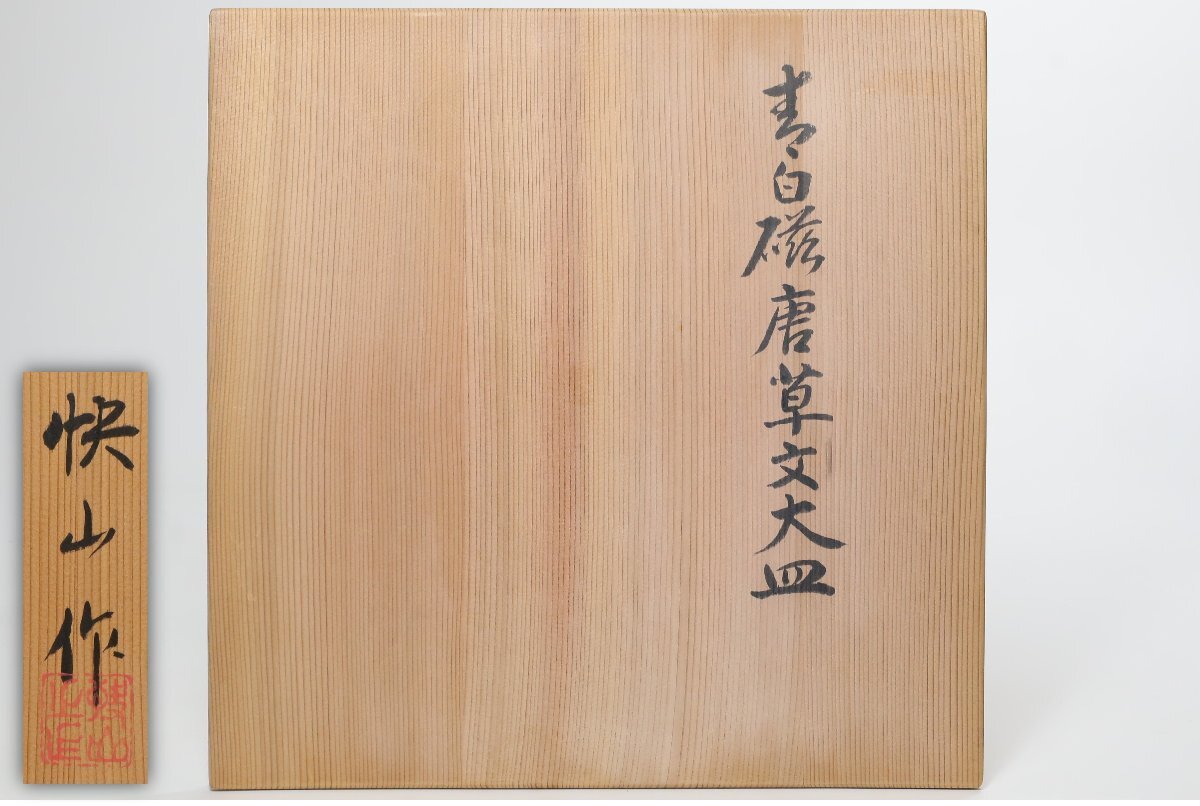 青白磁唐草文大皿
快山作